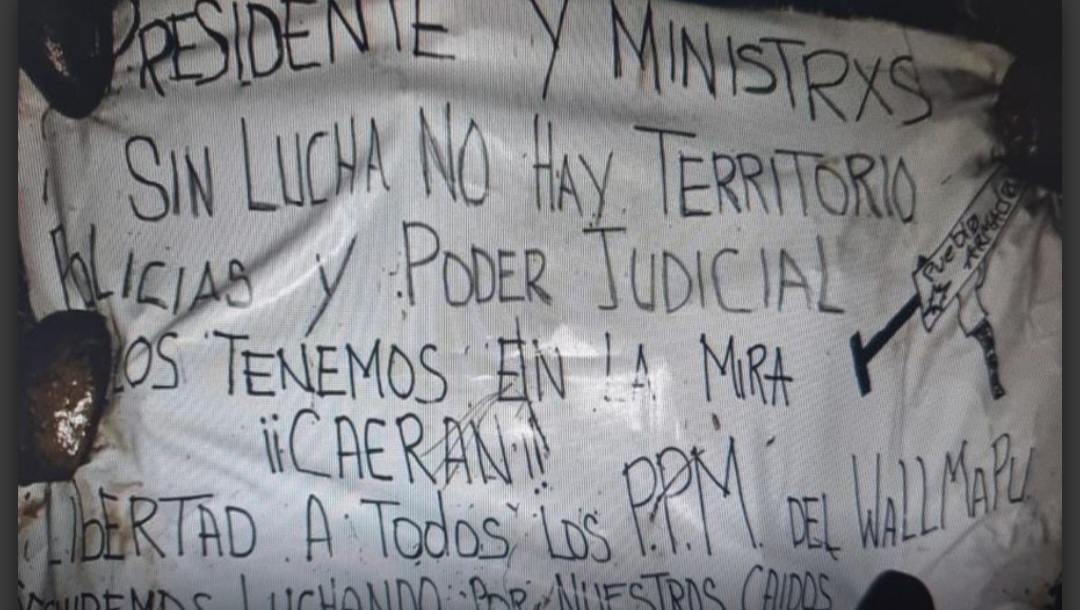 PRESIDENTE Y MINISTRXS
SIN LUCHA NO HAY TERRITORIO
POLICIAS Y PODER JUDICIAL
LOS TENEMOS EN LA MIRA
¡¡CAERAN!!
LIBERTAD A TODOS LOS P.P.M. DEL WALLMAPU
LUCHANDO POR NUESTROS CAIDOS
PUEBLO
ARMADO